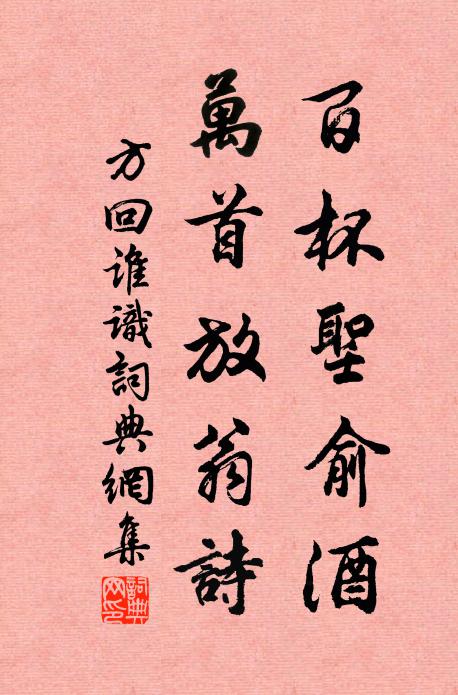 百杯聖俞酒
萬首放翁詩
方回谁識詞典網集
詞典網印